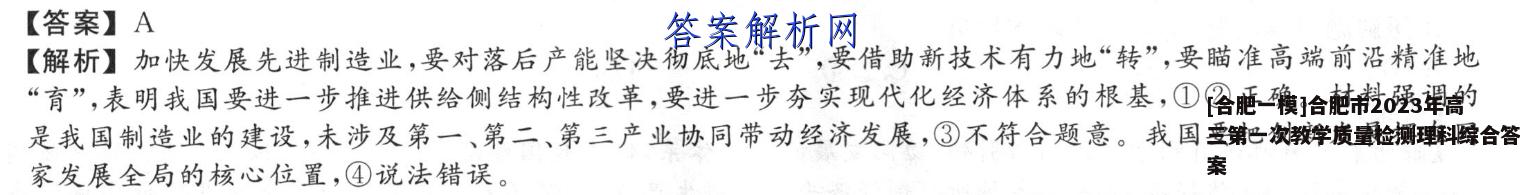 【答案】A
答案解析网
【解析】加快发展先进制造业,要对落后产能坚决彻底地“去”,要借助新技术有力地“转”,要瞄准高端前沿精准地
“育”,表明我国要进一步推进供给侧结构性改革,要进一步夯实现代化经济体系的根基,①②正确。材料强调的
是我国制造业的建设,未涉及第一、第二、第三产业协同带动经济发展,③不符合题意。我国
家发展全局的核心位置,④说法错误。
[合肥一模]合肥市2023年高
三第一次教学质量检测理科综合答
案